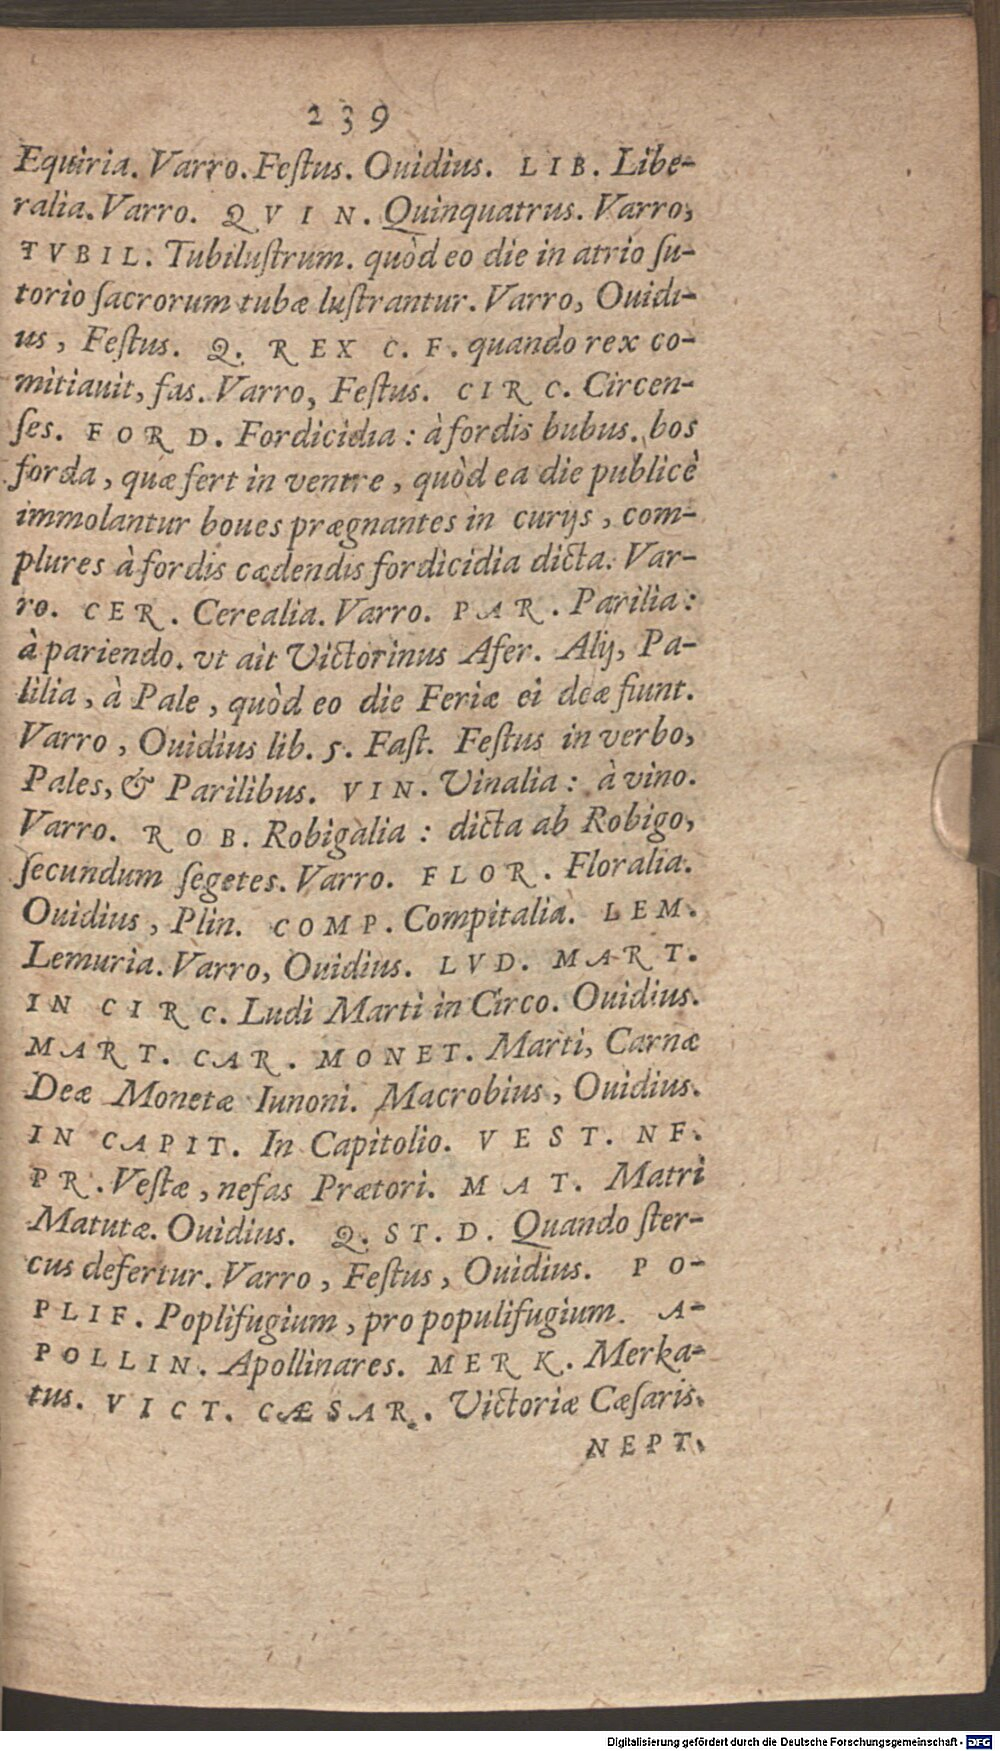 239
Equiria. Varro. Feſtus. Ouidius. LIB. Libe-
ralia. Varro. QVIN. Quinquatrus. Varro,
TVBIL. Tubiluſtrum. quòd eo die in atrio ſu-
torio ſacrorum tubæ luſtrantur. Varro, Ouidi-
us, Feſtus. Q. REX C. F. quando rex co-
mitiauit, fas. Varro, Feſtus. CIRC. Circen-
ſes. FORD. Fordicidia: à fordis bubus. bos
forda, quæ fert in ventre, quòd ea die publicè
immolantur boues prægnantes in curijs, com-
plures à fordis cædendis fordicidia dicta. Var-
ro. CER. Cerealia. Varro. PAR. Parilia:
à pariendo. vt ait Victorinus Afer. Alij, Pa-
lilia, à Pale, quòd eo die Feriæ ei deæ fiunt.
Varro, Ouidius lib. 5. Faſt. Feſtus in verbo,
Pales, & Parilibus. VIN. Vinalia: à vino.
Varro. ROB. Robigalia: dicta ab Robigo,
ſecundum ſegetes. Varro. FLOR. Floralia.
Ouidius, Plin. COMP. Compitalia. LEM.
Lemuria. Varro, Ouidius. LVD. MART.
IN CIRC. Ludi Marti in Circo. Ouidius.
MART. CAR. MONET. Marti, Carnæ
Deæ Monetæ Iunoni. Macrobius, Ouidius.
IN CAPIT. In Capitolio. VEST. NF.
PR. Veſtæ, nefas Prætori. MAT. Matri
Matutæ. Ouidius. Q. ST. D. Quando ſter-
cus defertur. Varro, Feſtus, Ouidius. PO-
PLIF. Poplifugium, pro populifugium. A-
POLLIN. Apollinares. MERK. Merka-
tus. VICT. CÆSAR. Victoriæ Cæſaris.
NEPT.
Digitalisierung gefördert durch die Deutsche Forschungsgemeinschaft - DFG